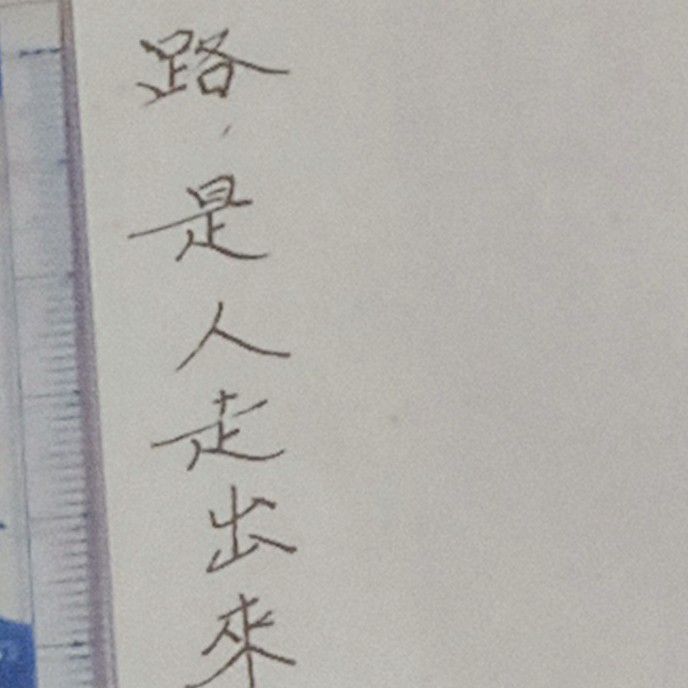 路,是人走出來